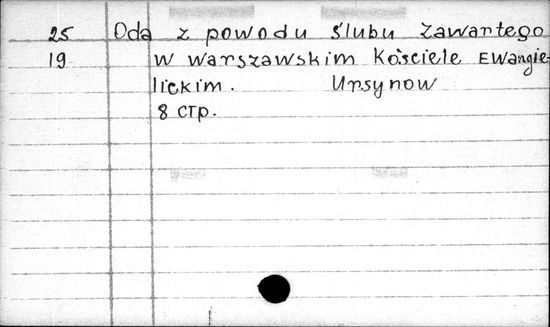 25 Oda z powodu ślubu zawartego
19 w warszawskim Kościele Ewangie-
lickim. Ursynow
8 стр.